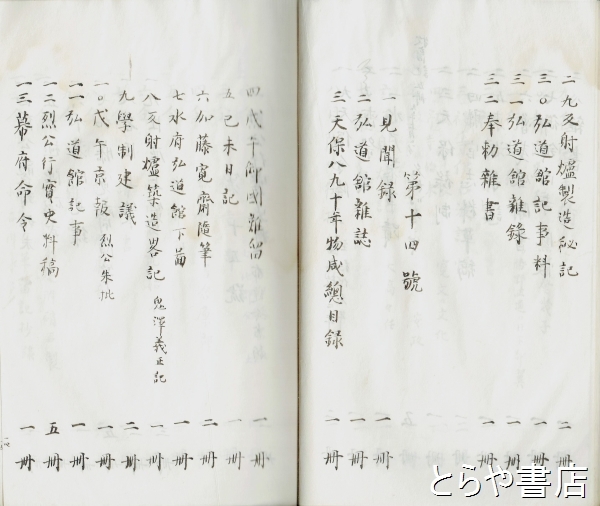 二九反射爐製造秘記 二冊
三〇弘道館記事料 一冊
三一弘道館雜錄 一冊
三二奉勅雜書 一冊
第十四號
一見聞錄 一冊
二弘道館雜誌 一冊
三天保八九十年物成總目録 一冊
四戊午御國難留 一冊
五己未日記 一冊
六加藤寛齋隨筆 二冊
七水府弘道館下畣 一冊
八反射爐築造畧記 鬼澤義正記 一冊
九學制建議 二冊
一〇戊午京報 烈公朱批 一冊
一一弘道館記事 一冊
一二烈公行實史料稿 五冊
一三幕府命令 一冊
とらや書店